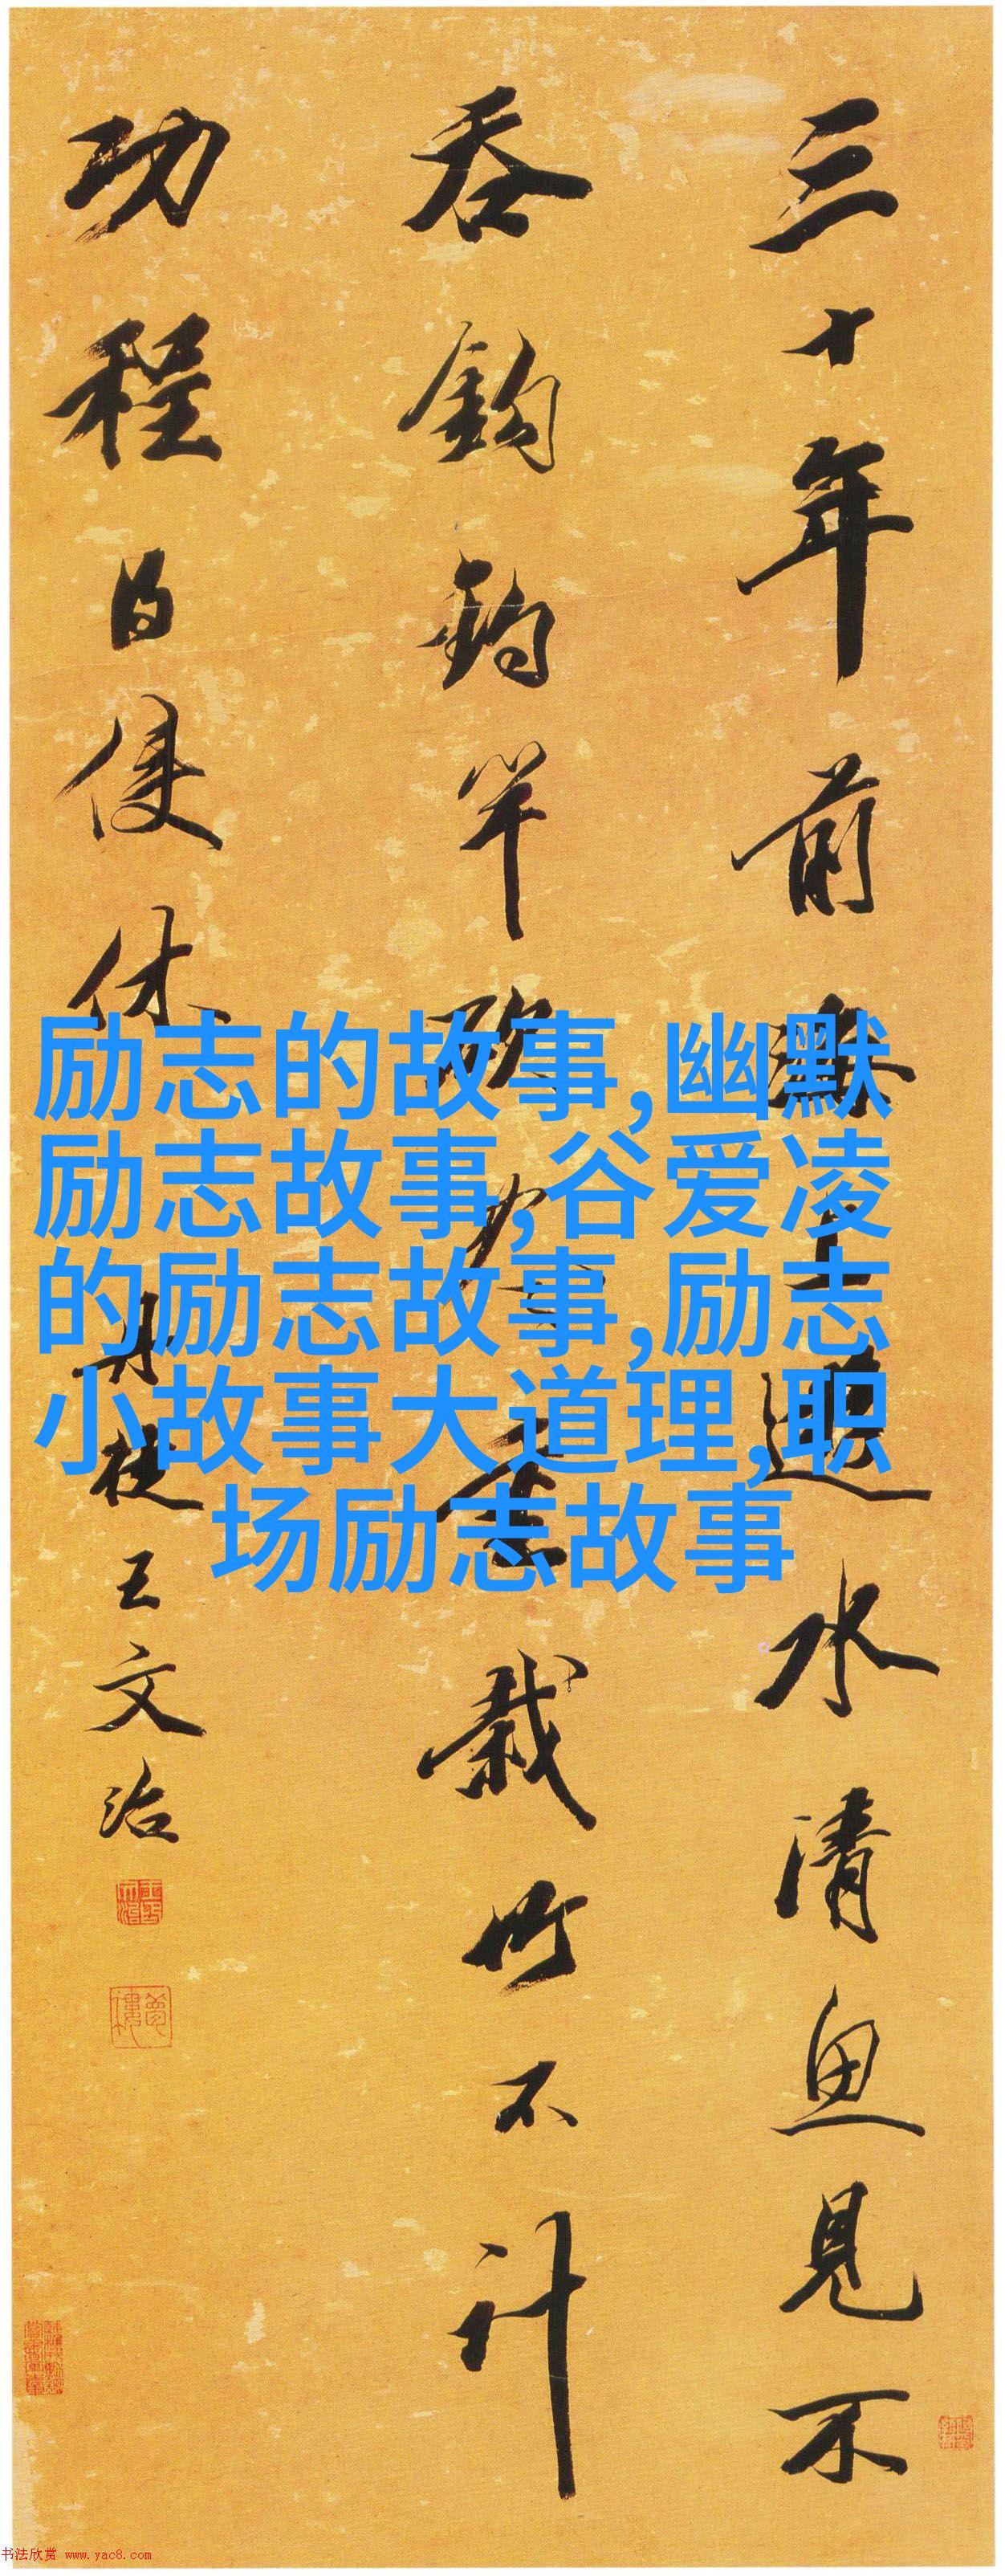 三十年前海上遊水清魚見不
吞鉤釣竿斫盡重栽竹不計
功程得便休
丹徒王文治
励志的故事,幽默
励志故事,谷爱凌
的励志故事,励志
小故事大道理,职
场励志故事
书法欣赏 www.yac8.com